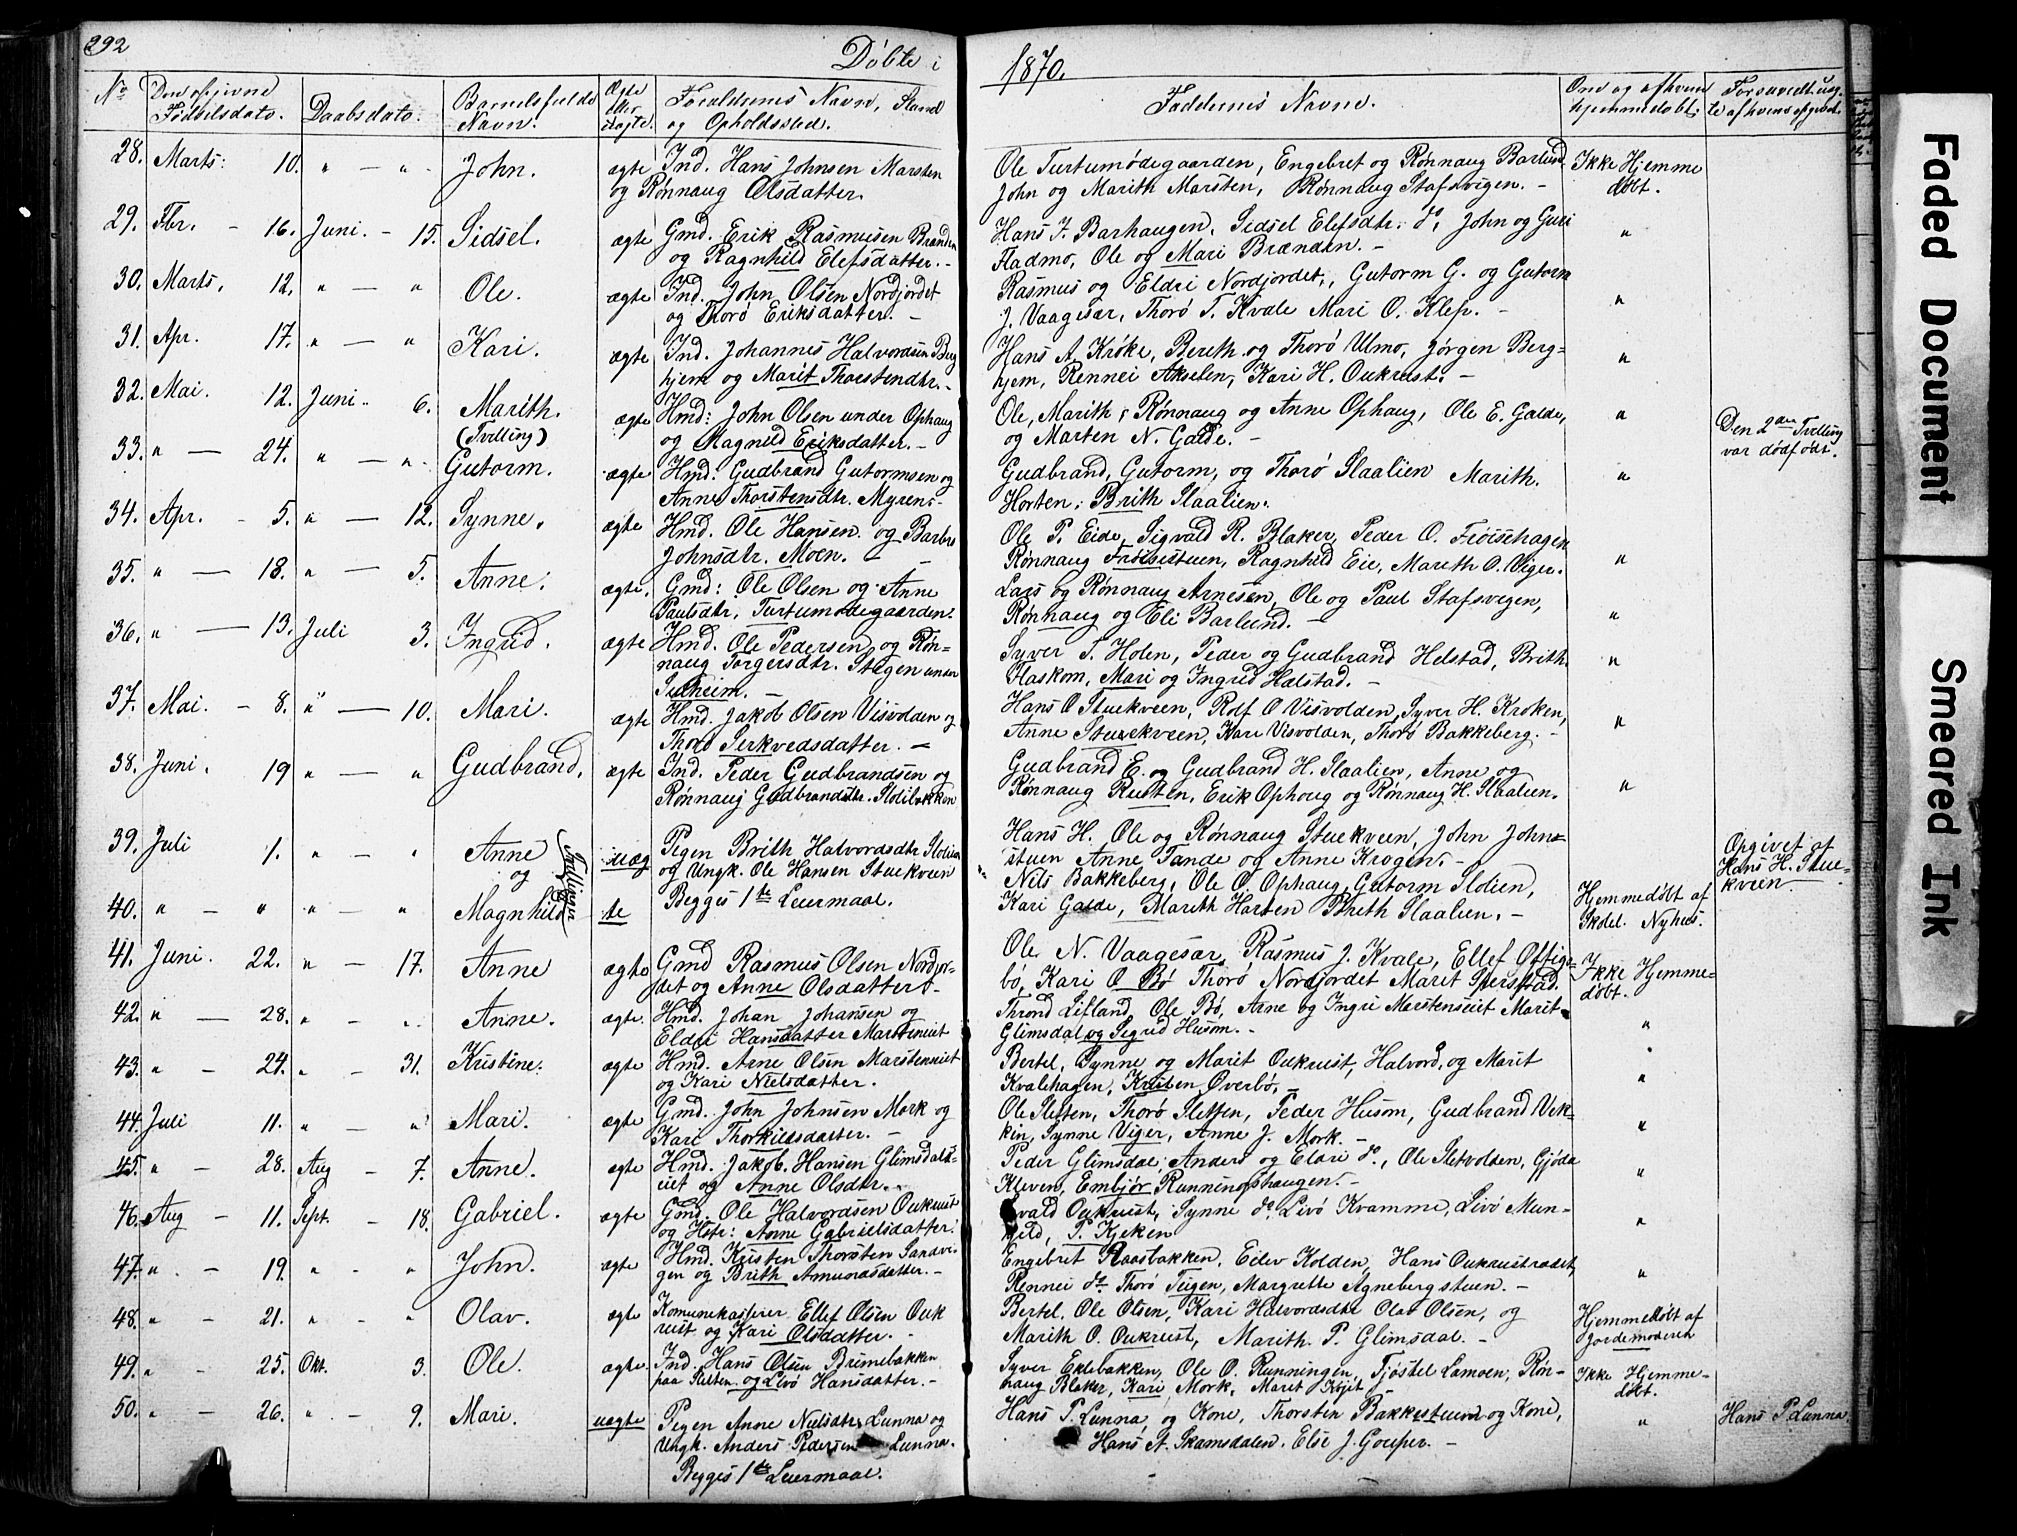 292
Døbte i
1870.
No Den opgivne Fødselsdato. Daabsdato. Barnets fulde Navn. Ægte eller uægte. Forældrenes Navn, Stand og Opholdssted. Faddernes Navne. Om og af hvem hjemmedøbt.
28. Marts: 10. " — " John. ægte Ind. Hans Johnsen Marsten Ole Turtumødegaarden, Engebret og Rønnaug Barlund Ikke Hjemme
og Rønnaug Olsdatter. John og Marith Marsten, Rønnaug Stafsvigen. — døbt.
29. Fbr. - 16. Juni. - 15. Sidsel. ægte Gmd. Erik Rasmusen Brænden Hans J. Barhaugen, Sidsel Elefsdtr. do, John og Guri "
og Ragnhild Elefsdatter. — Fladmo, Ole og Mari Brænden. —
30. Marts, 12. " — " Ole. ægte Ind. John Olsen Nordjordet Rasmus og Eldri Nordjordet, Gutorm G. og Gutorm
og Thorø Eriksdatter. — J. Vaagesar, Thorø T. Kvale Mari O. Klep. — "
31. Apr. 17. " — " Kari. ægte Ind. Johannes Halvordsen Berg Hans A. Krøke, Bereth og Thorø Ulmo, Jørgen Berg= "
hjem og Marit Thorstendtr. — hjem, Rennei Akselen, Kari H. Oukrust. —
32. Mai. 12. Juni. 6. Marith. ægte Hmd: John Olsen under Ophaug Ole, Marith, Rønnaug og Anne Ophaug, Ole E. Galde, " Den 2den Tvilling
(Tvilling) og Magnild Eriksdatter. — og Marten N. Galde. — var dødfødt.
33. " — 24. " — " Gutorm. ægte Hmd. Gudbrand Gutormsen og Gudbrand, Gutorm, og Thorø Slaalien Marith. "
Anne Thorstensdtr. Myren. Horten, Brith Slaalien.
34. Apr. - 5. " — 12. Synne. ægte Hmd. Ole Hansen og Barbro Ole P. Eide, Sigvald R. Blaker, Peder O. Frøisehagen
Johnsdtr. Moen. — Rønnaug Frøisestuen, Ragnhild Eie, Marith O. Viger. "
35. " — 18. " — 5. Anne. ægte. Gmd: Ole Olsen og Anne Lars og Rønnaug Arnesen, Ole og Paul Stafsvegen,
Paulsdtr, Turtumødegaarden. Rønnaug og Eli Barlund. — "
36. " — 13. Juli 3. Ingrid. ægte Hmd. Ole Pedersen og Røn= Syver S. Holen, Peder og Gudbrand Helstad, Brith "
naug Torgersdtr. Stegen under Flaskom, Mari og Ingrid Hælstad. —
Sulheim. —
37. Mai. - 8. " — 10. Mari. ægte Hmd. Jakob Olsen Visvolden og Hans O Stuekveen, Rolf O Visvolden, Syver H. Kroken, "
Thorø Serkvedsdatter. — Anne Stuekveen, Kari Visvolden, Thorø Bakkeberg. —
38. Juni. 19 " — " Gudbrand. ægte Ind. Peder Gudbrandsen og Gudbrand E. og Gudbrand H. Slaalien, Anne og
Rønnaug Gudbrandsdtr. Rønnaug Rusten, Erik Ophoug og Rønnaug H. Slaalien. "
39. Juli 1. " — " Anne uæg Pigen Brith Halvordsdtr Hans H. Ole og Rønnaug Stuekveen, John John= Opgivet af
og Tvillinger og Ungk. Ole Hansen Stuekveen stuen Anne Tande og Anne Krogen. — Hans H. Stue-
40. " - " " - " Magnhild te Begges 1te Leiermaal. Nils Bakkeberg, Ole O. Ophaug, Gutorm Slalien, Hjemmedøbt af kveen
Kari Galde, Marith Harten Brith Slaalien. — Skolel. Nyhus.
41. Juni. 22. " — 17. Anne ægte Gmd Rasmus Olsen Nordjor- Ole N. Vaagesar, Rasmus J. Kvale, Ellef Øftige- Ikke Hjemme-
det og Anne Olsdatter. — bø, Kari O Bø Thorø Nordjordet Marit døbt.
42. " — 28. " - " Anne. ægte. Hmd. Johan Johansen og Thrond Lifland, Ole Bø, Arne og Ingri Marstensuiet Marit
Eldri Hansdatter Marstenuiet Glimsdal og Sigrid Husom. — "
43. " - 24. " - 31. Kristine. ægte Hmd. Arne Olsen Marstenuiet Bertel, Synne og Marit Oukrust, Halvord, og Marit
og Kari Nielsdatter. Kvalehagen, Kristen Øverbø. — "
44. Juli 11. " — " Mari. ægte Gmd. John Johnsen Mork og Ole Sletten, Thorø Sletten, Peder Husom, Gudbrand Vek= "
Kari Thorkildsdatter. — kin, Synne Viger, Anne J. Mork. —
45. " - 28. Aug - 7. Anne. ægte Hmd. Jakob Hansen Glimsdals= Peder Glimsdal, Anders og Eldri do., Ole Sletvolden, Gjøda "
uiet og Anne Olsdtr. Kleven, Embjør Runningshaugen. —
46. Aug - 11. Sept. - 18. Gabriel. ægte Gmd. Ole Halvordsen Oukrust Oukrust, Synne do. Livø Kvamme, Livø Mun= "
og Hstr: Anne Gabrielsdatter. P. Kjeken
47. " - 19. " - " John. ægte Hmd. Kristen Thorsten Sandvi= Engebret Raasbakken, Eilev Kolden, Hans Oukrustrødet,
gen og Brith Amundsdatter. — Rennei do. Thorø Teigen, Margrette Agnebergstuen. — "
48. " - 21. " - " Olav. ægte Komunekasserer Ellef Olsen Ouk Bertel, Ole Olsen, Kari Halvordsdtr Olav Olsen, og Hjemmedøbt af
rust og Kari Olsdatter. — Marith O. Oukrust, Marith P. Glimsdal. — Jordemoderen
49. " - 25. Okt. 3. Ole. ægte. Ind. Hans Olsen Brimebakken Syver Eklebakken, Ole O. Runningen, Tjøstel Lamoen, Røn- Ikke Hjemme-
paa Sletten og Livø Hansdatter. — naug Blaker, Kari Mork, Maret døbt.
50. " - 26. " - 9. Mari. uægte Pigen Anne Nielsdtr Lunna og Hans P. Lunna og Kone, Thorsten Bakkestuen og Kone, " Hans P Lunna.
Ungk. Anders Pedersen Lunna. Hans A. Skamsdalen. Else J. Gouper. —
Begges 1te Leiermaal.
Faded Document
Smeared Ink